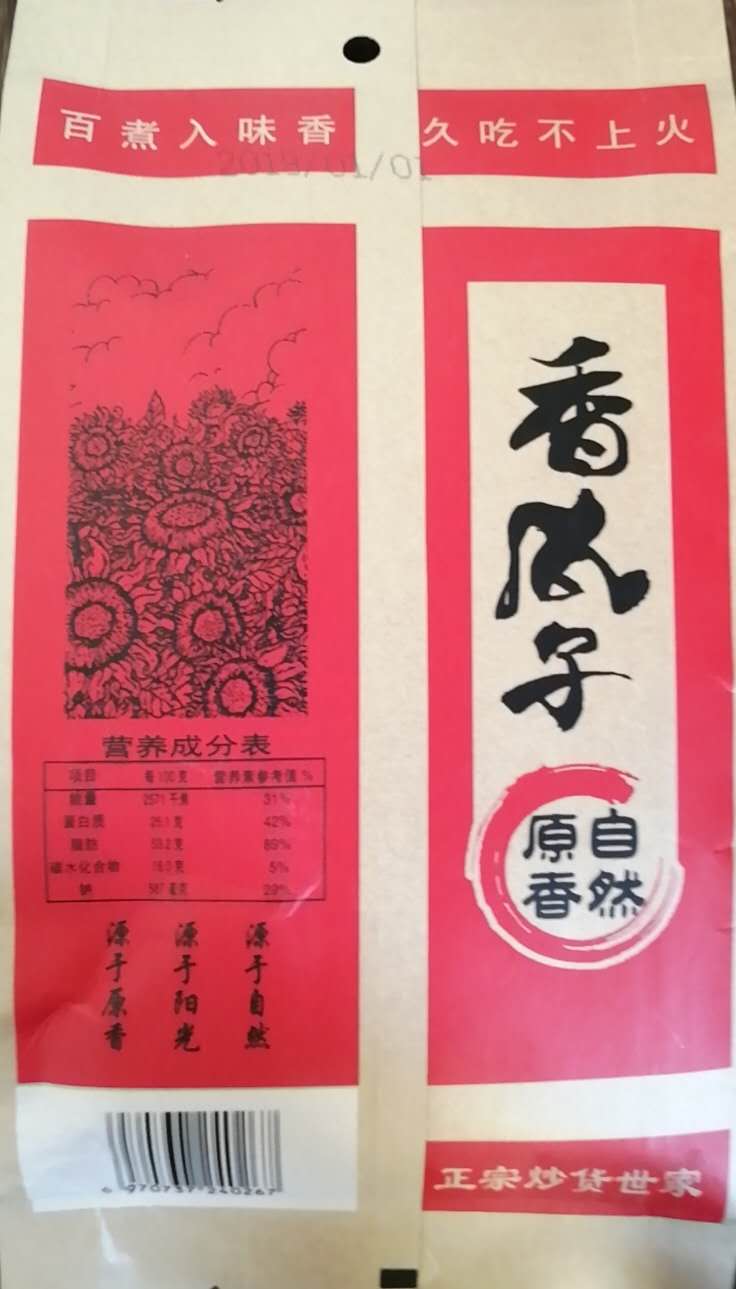 百煮入味香
久吃不上火
2019/01/01
营养成分表
项目 每100克 营养素参考值%
能量 2571千焦 31%
蛋白质 25.1克 42%
脂肪 53.2克 89%
碳水化合物 16.0克 5%
钠 587毫克 29%
源于自然
源于阳光
源于原香
6 970737 240267
香瓜子
自然
原香
正宗炒货世家